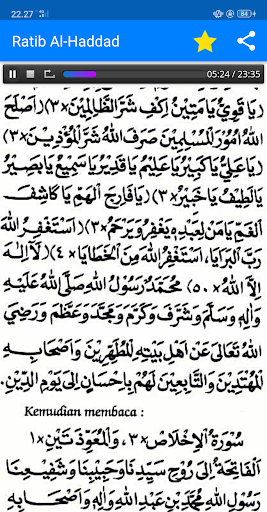 22.27
84
Ratib Al-Haddad
05:24 / 23:35
(يَا قَوِيُّ يَا مَتِيْنُ اِكْفِ شَرَّ الظَّالِمِيْنَ ×٣) (اَصْلَحَ
اللهُ اُمُوْرَ الْمُسْلِمِيْنَ صَرَفَ اللهُ شَرَّ الْمُؤْذِيْنَ ×٣)
(يَا عَلِيُّ يَا كَبِيْرُ يَا عَلِيْمُ يَا قَدِيْرُ يَا سَمِيْعُ يَا بَصِيْرُ
يَا لَطِيْفُ يَا خَبِيْرُ ×٣) (يَا فَارِجَ الْهَمِّ يَا كَاشِفَ
الْغَمِّ يَا مَنْ لِعَبْدِهِ يَغْفِرُ وَيَرْحَمُ ×٣) (اَسْتَغْفِرُ اللهَ
رَبَّ الْبَرَايَا، اَسْتَغْفِرُ اللهَ مِنَ الْخَطَايَا ×٤) (لَآ اِلٰهَ
اِلَّا اللهُ ×٥٠) مُحَمَّدٌ رَسُوْلُ اللهِ صَلَّى اللهُ عَلَيْهِ
وَاٰلِهِ وَسَلَّمَ وَشَرَّفَ وَكَرَّمَ وَمَجَّدَ وَعَظَّمَ وَرَضِيَ
اللهُ تَعَالَى عَنْ اَهْلِ بَيْتِهِ الْمُطَهَّرِيْنَ وَاَصْحَابِهِ
الْمُهْتَدِيْنَ وَالتَّابِعِيْنَ لَهُمْ بِاِحْسَانٍ اِلَى يَوْمِ الدِّيْنِ.
Kemudian membaca :
سُوْرَةُ الْاِخْلَاصِ ×٣، وَالْمُعَوِّذَتَيْنِ ×١
اَلْفَاتِحَةُ اِلَى رُوْحِ سَيِّدِنَا وَحَبِيْبِنَا وَشَفِيْعِنَا
رَسُوْلِ اللهِ مُحَمَّدِ بْنِ عَبْدِ اللهِ وَاٰلِهِ وَاَصْحَابِهِ